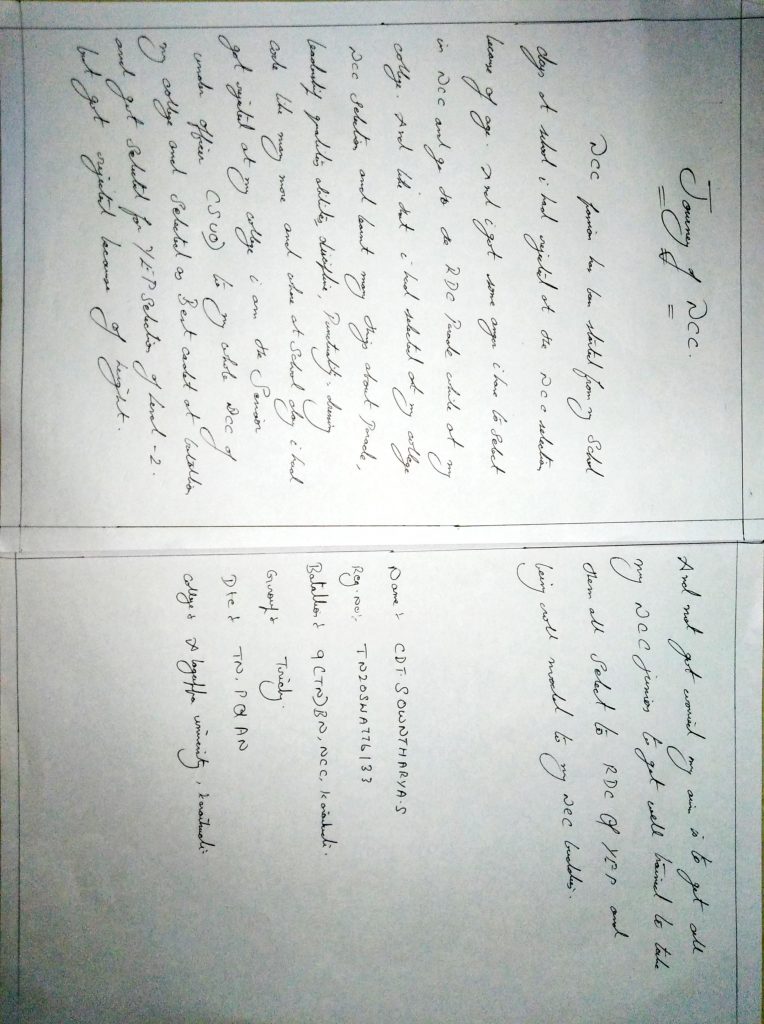 Journey of NCC.
NCC passion has been started from my School
days at school i had rejected at the NCC selection
because of age. And i got some anger i have to select
in NCC and go to do RDC Parade while at my
college. And like that i had selected at my college
NCC Selection and learnt many things about Parade,
leadership qualities, abilities, discipline, Punctuality, dressing
code like many more and where at School day i had
got rejected at my college i am the Senior
under officer (SUO) to my whole NCC of
my college and selected as Best cadet at batallion
and got selected for YEP Selection of Level-2.
but got rejected because of height.
And not get worried my aim is to get all
my NCC juniors to get well trained to take
them all Select to RDC & YEP and
being roll model to my NCC buddies.
Name: CDT. SOWNTHARYA.S
Reg.No: TN20SWA776133
Batallion: 9(TN)BN, NCC, karaikudi.
Group: Trichy.
Dte: TN, P & AN
college: Alagappa university, karaikudi